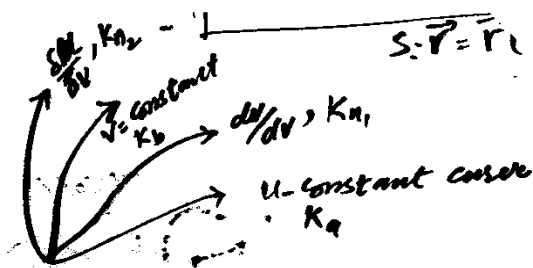 S: r⃗ = r⃗
δu/δv, Kn₂
v = constant
K_b
du/dv, Kn₁
u-constant curve
K_a